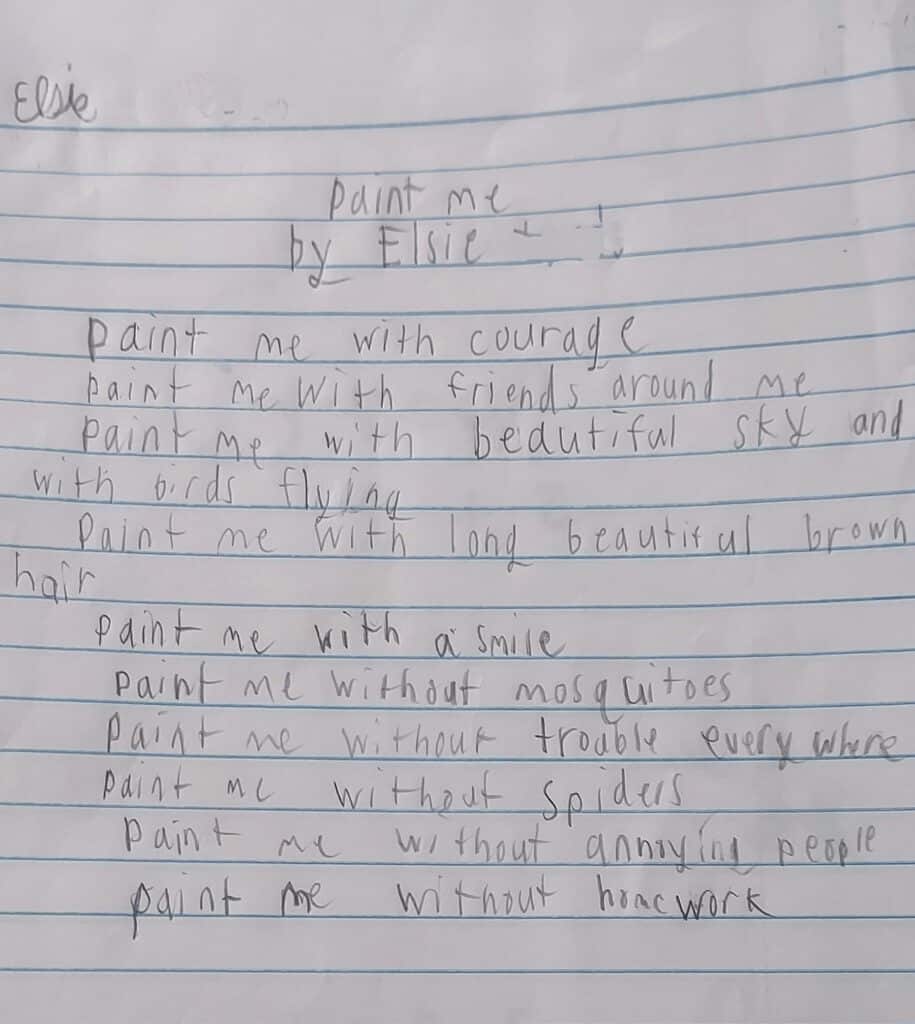 Elsie
paint me
by Elsie
paint me with courage
paint me with friends around me
paint me with beautiful sky and
with birds flying
Paint me with long beautiful brown
hair
paint me with a smile
paint me without mosquitoes
paint me without trouble every where
paint me without spiders
paint me without annoying people
paint me without homework